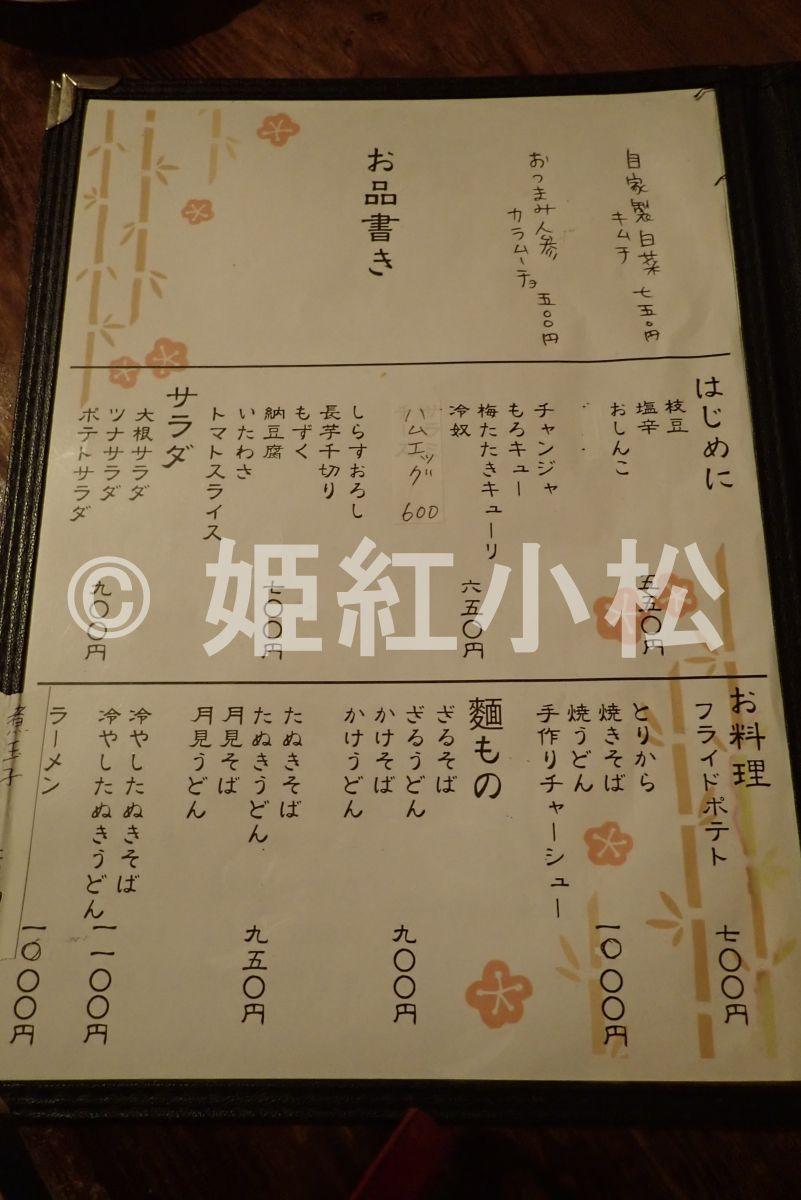 自家製白菜
キムチ 七五〇円
おつまみ人参
カラムーチョ 五〇〇円
お品書き
はじめに
枝豆
塩辛
おしんこ
五五〇円
チャンジャ
もろキュー
梅たたきキューリ
冷奴
六五〇円
ハムエッグ 600
しらすおろし
長芋千切り
もずく
納豆腐
いたわさ
トマトスライス
七〇〇円
サラダ
大根サラダ
ツナサラダ
ポテトサラダ
九〇〇円
お料理
フライドポテト
七〇〇円
とりから
焼きそば
焼うどん
手作りチャーシュー
一〇〇〇円
麺もの
ざるそば
ざるうどん
かけそば
かけうどん
九〇〇円
たぬきそば
たぬきうどん
月見そば
月見うどん
九五〇円
冷やしたぬきそば
冷やしたぬきうどん
一一〇〇円
ラーメン
一〇〇〇円
© 姫紅小松